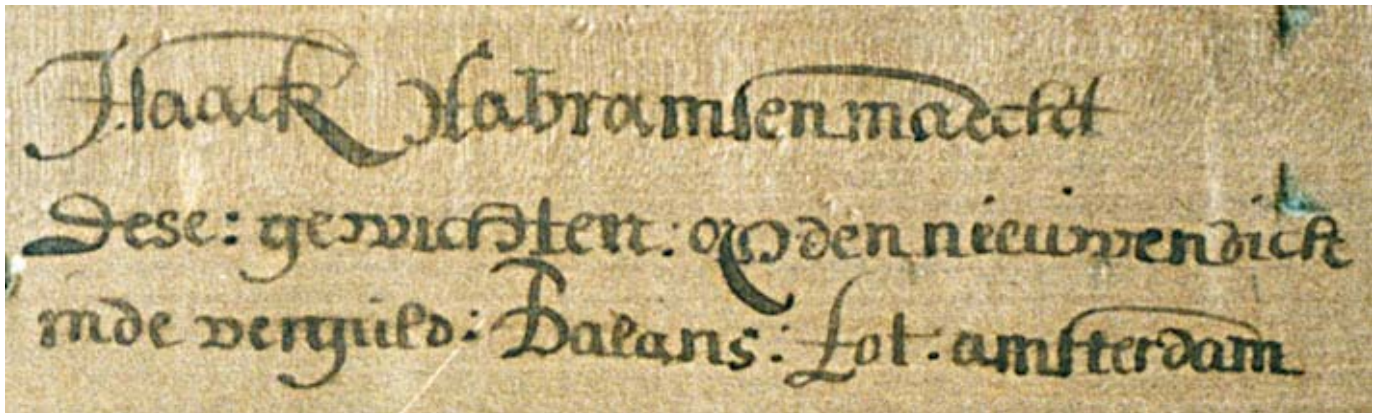 Isaack Habramsen maeckt
Dese: gewichten: op den nieuwendick
inde verguld: Balans: Tot: amsterdam